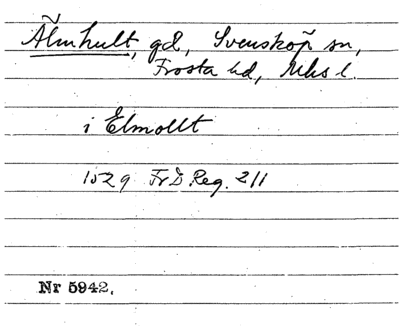 Älmhult, gd, Svensköp sn,
Frosta hd, Mhs l.
i Elmollt
1529 Fr D Reg. 211
Nr 5942.